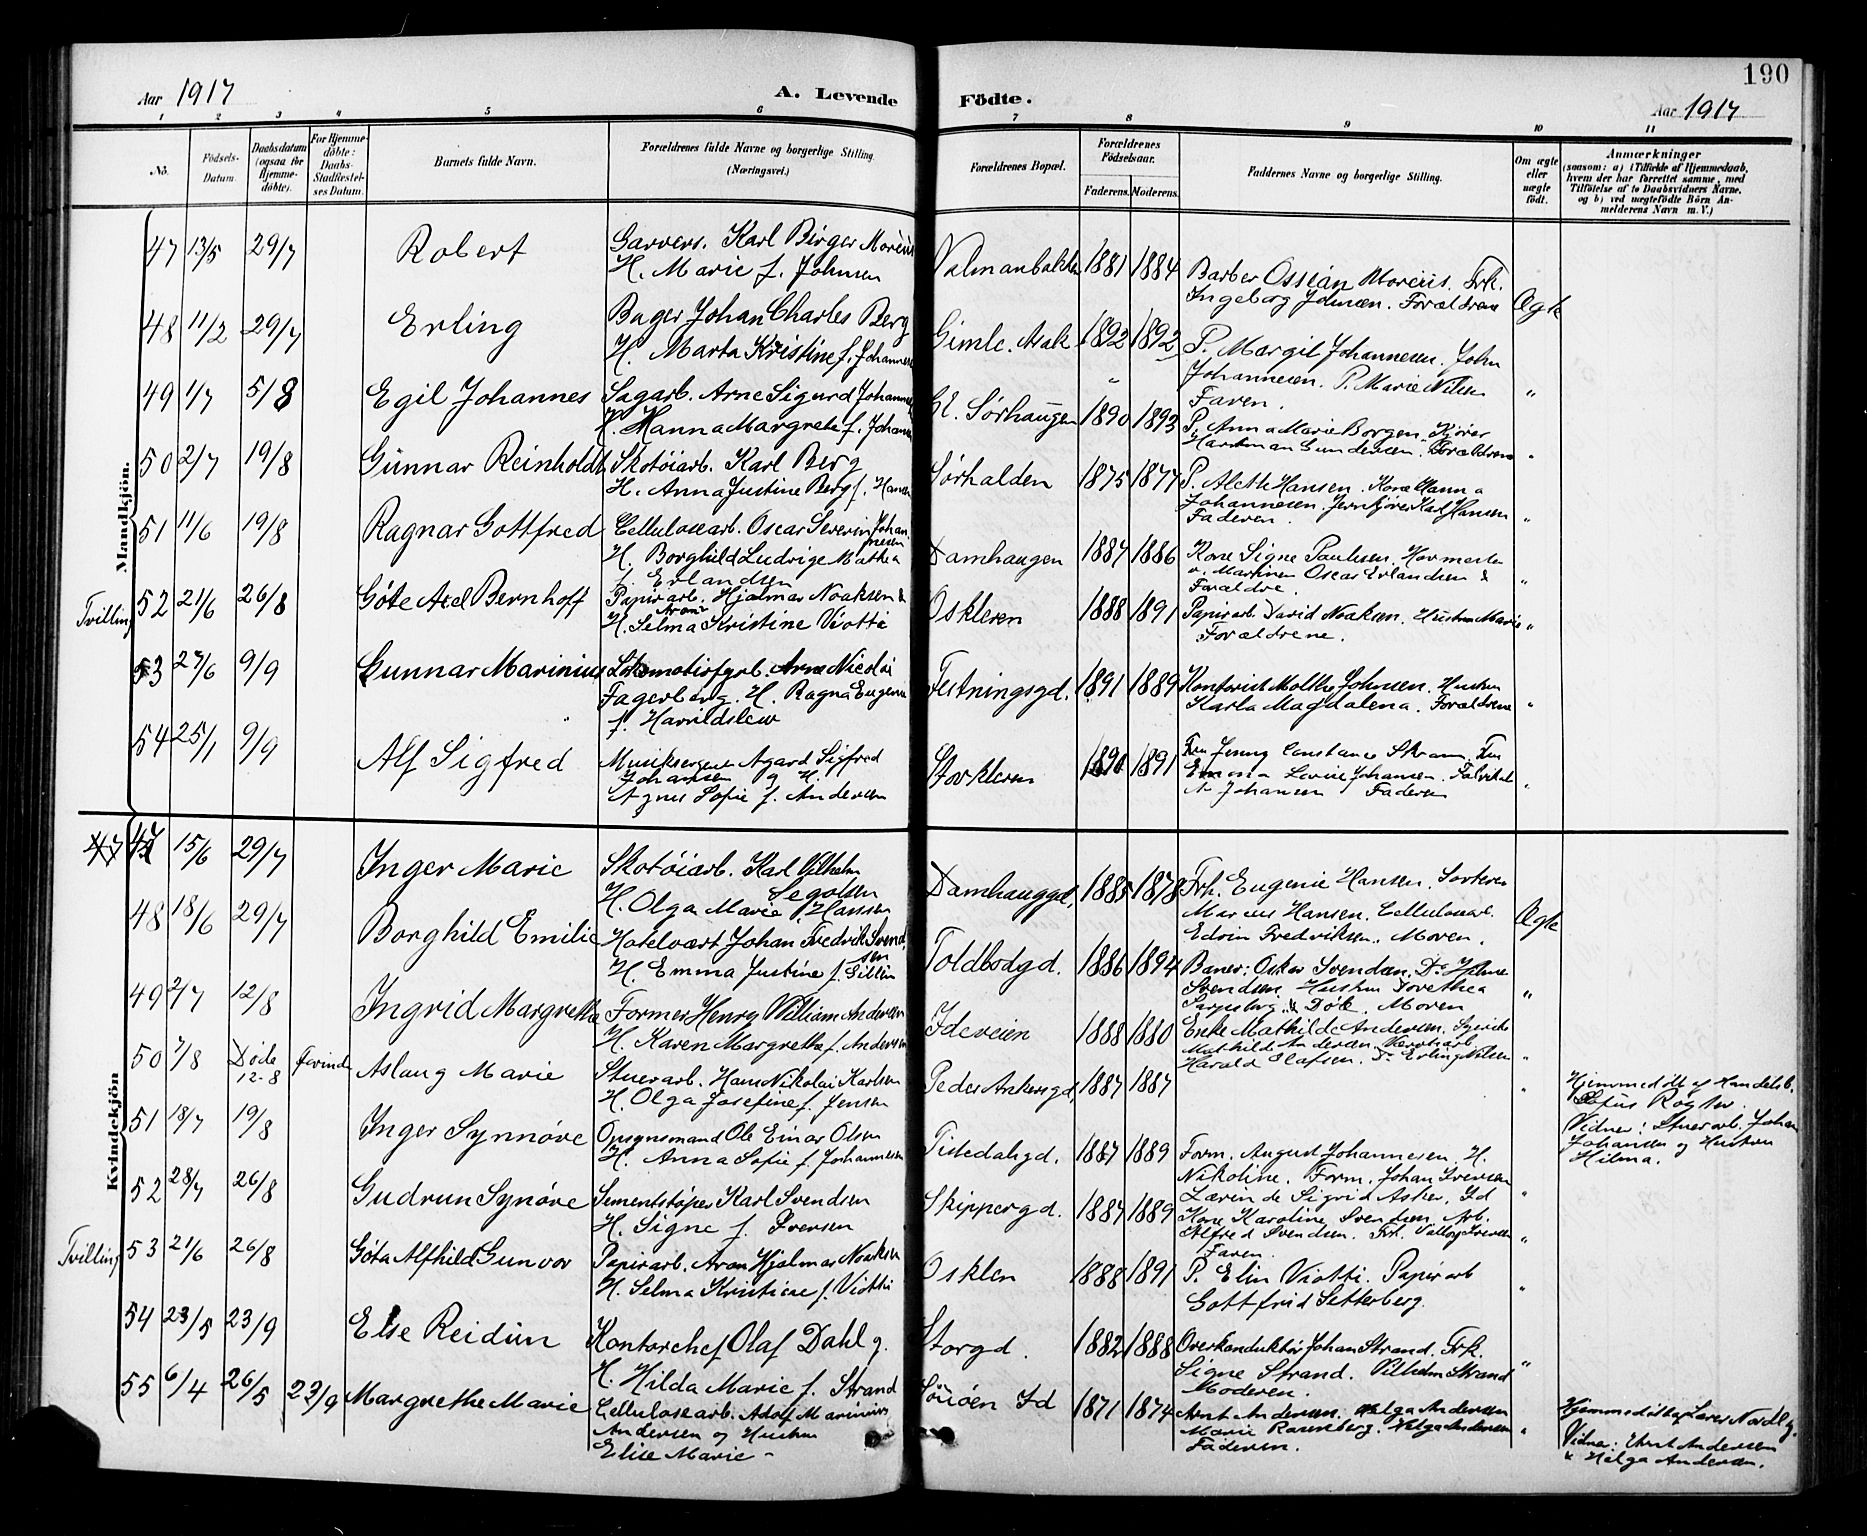 190
Aar 1917
A. Levende
Födte.
Aar 1917
1 2 3 4 5 6 7 8 9 10 11
No.
Födsels-Datum.
Daabsdatum (ogsaa for Hjemme-døbte).
For Hjemme-døbte: Daabs-Stadfæstelses Datum.
Barnets fulde Navn.
Forældrenes fulde Navne og borgerlige Stilling (Næringsvei.)
Forældrenes Bopæl.
Forældrenes Födselsaar.
Faderens. Moderens.
Faddernes Navne og borgerlige Stilling.
Om ægte eller uægte födt.
Anmærkninger
(saasom: a) i Tilfælde af Hjemmedaab, hvem der har forrettet samme, med Tilföielse af to Daabsvidners Navne, og b) ved uægtefödte Börn Anmelderens Navn m. V.)
Mandkjön.
47 13/5 29/7 Robert
Garvers. Karl Birger Moreius
H. Marie f. Johnsen
1881 1884
Barber Ossian Moreius. Frk.
Ingeborg Johnsen. Forældrene
Ægte
48 11/2 29/7 Erling
Bager Johan Charles Berg
H. Marta Kristine f. Johannesen
Gimle. Asak 1892 1892
P. Margit Johannesen. John
Johannesen. P. Marie Nilsen
Faren. "
49 1/7 5/8 Egil Johannes
Sagarb. Arne Sigurd Johannes
H. Hanna Margrete f. Johan
Gl. Sørhaugen 1890 1893
P. Anna Marie Borgen. Kjører
Hartman Gundersen. Forældrene "
50 2/7 19/8 Gunnar Reinholdt
Skotöiarb. Karl Berg
H. Anna Justine Berg f. Hansen
Sørhalden 1875 1877
P. Alette Hansen. Kone Hanna
Johannesen. Jernkjører Karl Hansen
Faderen. "
51 11/6 19/8 Ragnar Gottfred
Cellulosearb. Oscar Severin Johannesen
H. Borghild Ludvige Mathea
f. Erlandsen
Damhaugen 1887 1886
Kone Signe Paulsen. Havnearb
Martin Oscar Erlandsen &
Forældre. "
Tvilling 52 21/6 26/8 Göte Axel Bernhoff
Papirarb. Hjalmar Noaksen &
Aron
H. Selma Kristine Viotti
Oskleven 1888 1891
Papirarb David Noaksen. Hustru Marie
Forældrene. "
53 27/6 9/9 Gunnar Marinius
Lokomotivfyrb. Arne Nicolai
Fagerberg. H. Ragna Eugenie
f. Harildslew
Festningsgd. 1891 1889
Kontorist Molthe Johnsen. Hustru
Karla Magdalena. Forældrene "
54 25/1 9/9 Alf Sigfred
Musiksergent Agard Sigfred
Johansen og H.
Agnes Sofie f. Andersen
Storkleven 1890 1891
Fru Jenny Constance Skram. Fru
Emma Lovise Johansen. Fabrikat
A Johansen Faderen "
Kvindekjön
47 15/6 29/7 Inger Marie
Skotöiarb. Karl Vilhelm
Segolsen
H. Olga Marie f. Hansen
Damhauggd. 1885 1878
Frk. Eugenie Hansen. Sorterer
Marius Hansen. Cellulosearb.
Edvin Fredriksen. Moren.
Ægte
48 18/6 29/7 Borghild Emilie
Hotelvært Johan Fredrik Svendsen
H. Emma Justine f. Sillin
Toldbodgd. 1886 1894
Baner: Oskar Svendsen. Do Hilma
Svendsen Hustru Dorethea
Sarpsborg & Dök. Moren "
49 2/7 12/8 Ingrid Margrethe
Former Henry William Andersen
H. Karen Margrethe f. Andersen
Ideveien 1888 1880
Enke Mathilde Andersen. Syerske
Mathilde Andersen. Værftsarb.
Harald Olafsen. Do Erling Nilsen "
50 7/8 Døde 12-8 forinden Aslaug Marie
Stuerarb. Hans Nikolai Karlsen
H. Olga Josefine f. Jensen
Peder Ankersgd. 1887 1887 "
Hjemmedøbt af Handelsb.
Rogster.
Vidner: Stuerarb. Johan
Johansen og Hustru
Hilma.
51 18/7 19/8 Inger Synnöve
Opsynsmand Ole Einar Olsen
H. Anna Sofie f. Johannesen
Tistedalsgd. 1887 1889
Form. August Johannesen. H.
Nikoline. Form. Johan Iversen
Lærerinde Sigrid Asker, Id "
52 28/7 26/8 Gudrun Synöve
Sementstöper Karl Svendsen
H. Signe f. Iversen
Skippergd. 1887 1889
Kone Karoline Svendsen Arb.
Alfred Svendsen. Frk. Valborg Iversen
Faren. "
Tvilling 53 21/6 26/8 Göta Alfhild Gunvor
Papirarb. Aron Hjalmar Noaksen
H. Selma Kristine f. Viotti
Osklen 1888 1891
P. Elin Viotti. Papirarb
Gottfrid Setterberg. "
54 23/5 23/9 Else Reidun
Kontorchef Olaf Dahl g.
H. Hilda Marie f. Strand
Storgd. 1882 1888
Overkonduktör Johan Strand. Frk.
Signe Strand. Vilhelm Strand
Moderen. "
55 6/4 26/5 23/9 Margrethe Marie
Cellulosearb. Adolf Marinius
Andersen og Hustru
Elise Marie -
Sauöen Id 1871 1874
Arnt Andersen. Helga Andersen
Marie Ramberg. Helga Andersen
Faderen. "
Hjemmedöbt af Lærer Nordl g.
Vidne: Arnt Andersen
& Helga Andersen.